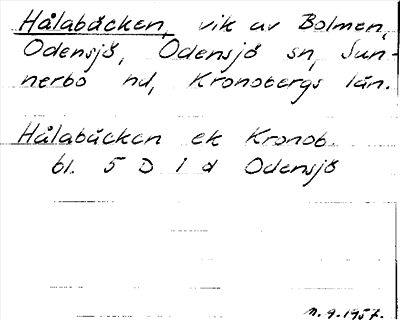 Hålabäcken, vik av Bolmen,
Odensjö, Odensjö sn, Sun-
nerbo hd, Kronobergs län.
Hålabäcken ek Kronob.
bl. 5 D 1 d Odensjö
9.1957.